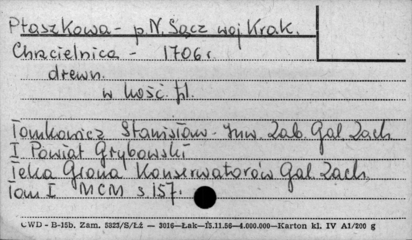 Ptaszkowa - p. N. Sącz woj Krak.
Chrzcielnica - 1706 r.
drewn.
w kość. fil.
Tomkowicz Stanisław - Inw. Zab. Gal. Zach
I Powiat Grybowski
Teka Grona Konserwatorów Gal. Zach.
Tom I MCM s. 157.
CWD - B-15b. Zam. 5323/S/Łż — 3016—Łak—15.11.56—4.000.000—Karton kl. IV A1/200 g